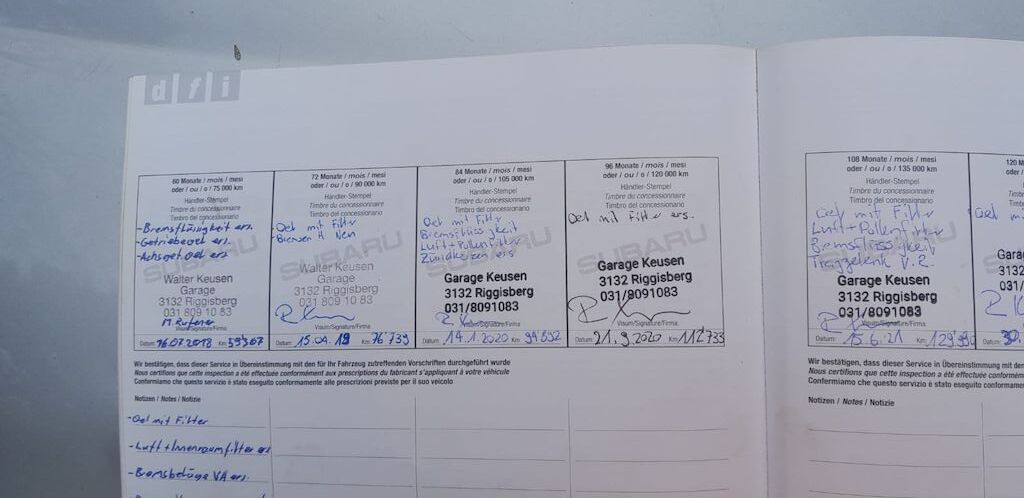 d f i
60 Monate / mois / mesi
oder / ou / o / 75 000 km
Händler-Stempel
Timbre du concessionnaire
Timbro del concessionario
- Bremsflüssigkeit ers.
- Getriebeoel ers.
- Achsgetr. oel ers
SUBARU
Walter Keusen
Garage
3132 Riggisberg
031 809 10 83
Visum/Signature/Firma
Datum: 16.07.2018 Km 59307
72 Monate / mois / mesi
oder / ou / o / 90 000 km
Händler-Stempel
Timbre du concessionnaire
Timbro del concessionario
Oel mit Filter
Bremsen H. Neu
SUBARU
Walter Keusen
Garage
3132 Riggisberg
031 809 10 83
Visum/Signature/Firma
Datum: 15.04.19 Km 76 739
84 Monate / mois / mesi
oder / ou / o / 105 000 km
Händler-Stempel
Timbre du concessionnaire
Timbro del concessionario
Oel mit Filter
Bremsflüssigkeit
Luft + Pollenfilter
Zündkerzen ers
SUBARU
Garage Keusen
3132 Riggisberg
031/8091083
Visum/Signature/Firma
Datum: 14.1.2020 Km
96 Monate / mois / mesi
oder / ou / o / 120 000 km
Händler-Stempel
Timbre du concessionnaire
Timbro del concessionario
Oel mit Filter ers.
SUBARU
Garage Keusen
3132 Riggisberg
031/8091083
Visum/Signature/Firma
Datum: 21.9.2020 Km 112733
Wir bestätigen, dass dieser Service in Übereinstimmung mit den für Ihr Fahrzeug zutreffenden Vorschriften durchgeführt wurde
Nous certifions que cette inspection a été effectuée conformément aux prescriptions du fabricant s'appliquant à votre véhicule
Confermiamo che questo servizio è stato eseguito conformemente alle prescrizioni previste per il suo veicolo
Notizen / Notes / Notizie
- Oel mit Filter
- Luft + Innenraumfilter ers
- Bremsbeläge VA ers.
108 Monate / mois / mesi
oder / ou / o / 135 000 km
Händler-Stempel
Timbre du concessionnaire
Timbro del concessionario
Oel mit Filter
Luft + Pollenfilter
Bremsflüssigkeit
Traggelenk V.R.
SUBARU
Garage Keusen
3132 Riggisberg
031/8091083
Visum/Signature/Firma
Datum: 15.6.21 Km
120 M
oder
Oel
Gara
313
031/
Datum: 30.
Wir bestätigen, dass dieser Service in Übereinstimmung mit den
Nous certifions que cette inspection a été effectuée conformém
Confermiamo che questo servizio è stato eseguito conformeme
Notizen / Notes / Notizie